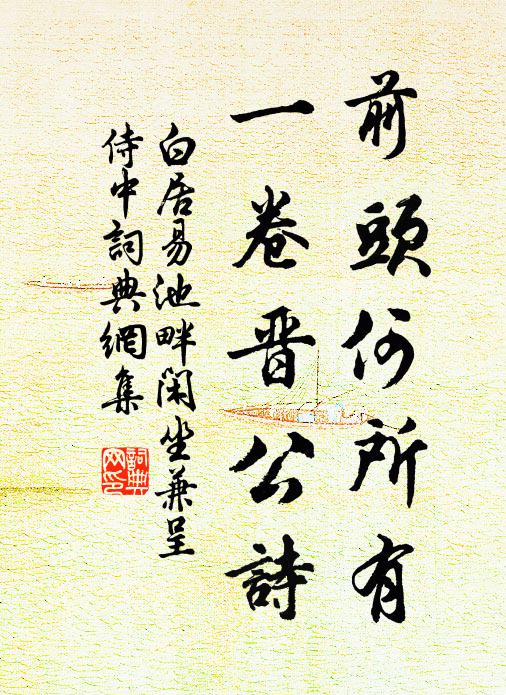 前頭何所有
一卷晋公詩
白居易池畔閑坐兼呈
侍中詞典網集
詞典网印